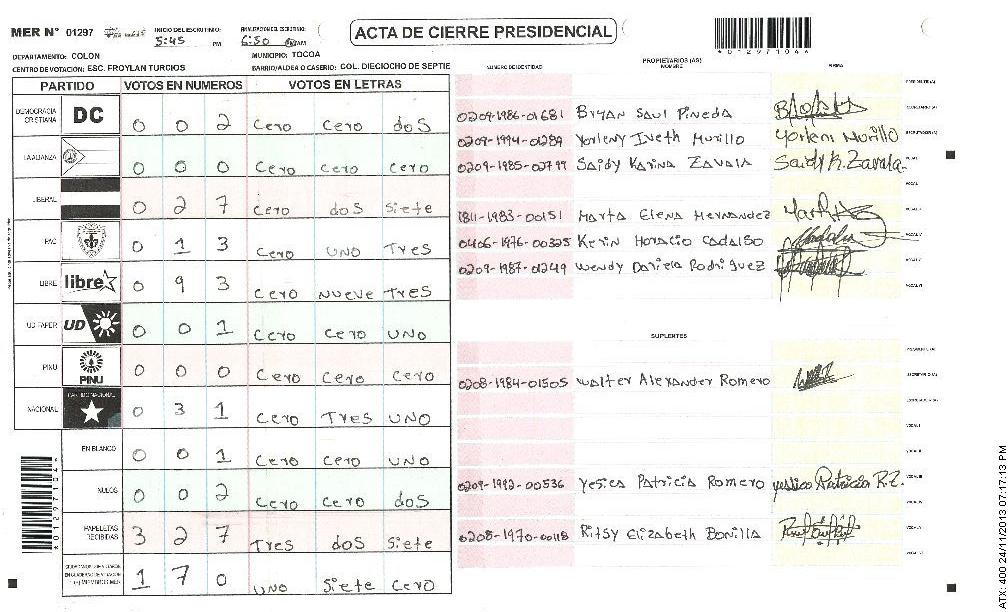 MER N° 01297
INICIO DEL ESCRUTINIO:
5:45 PM
FINALIZACION DEL ESCRUTINIO:
6:50
ACTA DE CIERRE PRESIDENCIAL
*01297104*
DEPARTAMENTO: COLON
MUNICIPIO: TOCOA
CENTRO DE VOTACION: ESC. FROYLAN TURCIOS
BARRIO/ALDEA O CASERIO: COL. DIECIOCHO DE SEPTIE
PARTIDO VOTOS EN NUMEROS VOTOS EN LETRAS
DEMOCRACIA CRISTIANA DC 0 0 2 Cero Cero doS
LA ALIANZA 0 0 0 Cero Cero Cero
LIBERAL 0 2 7 Cero doS Siete
PAC 0 1 3 Cero UNO TreS
LIBRE libre 0 9 3 Cero NUeVe TreS
UD FAPER UD 0 0 1 Cero Cero UNO
PINU PINU 0 0 0 Cero Cero Cero
NACIONAL PARTIDO NACIONAL 0 3 1 Cero TreS UNO
EN BLANCO 0 0 1 Cero Cero UNO
NULOS 0 0 2 Cero Cero doS
PAPELETAS RECIBIDAS 3 2 7 TreS doS Siete
1 7 0 UNO Siete Cero
NUMERO DE IDENTIDAD
PROPIETARIOS (AS)
NOMBRE
FIRMA
0209-1986-01681 Bryan Saul Pineda
0209-1994-01289 Yorleny Iveth Murillo Yorleni Murillo
0209-1985-02799 Saidy Karina Zavala Saidy K. Zavala
1811-1983-00151 Marta Elena Hernandez
0406-1976-00325 Kevin Horacio Cadalso
0209-1987-01249 Wendy Daniela Rodriguez
SUPLENTES
0208-1984-01505 Walter Alexander Romero
0209-1992-00536 Yesica Patricia Romero
0208-1970-00118 Ritsy Elizabeth Bonilla
ATX: 400 24/11/2013 07:17:13 PM